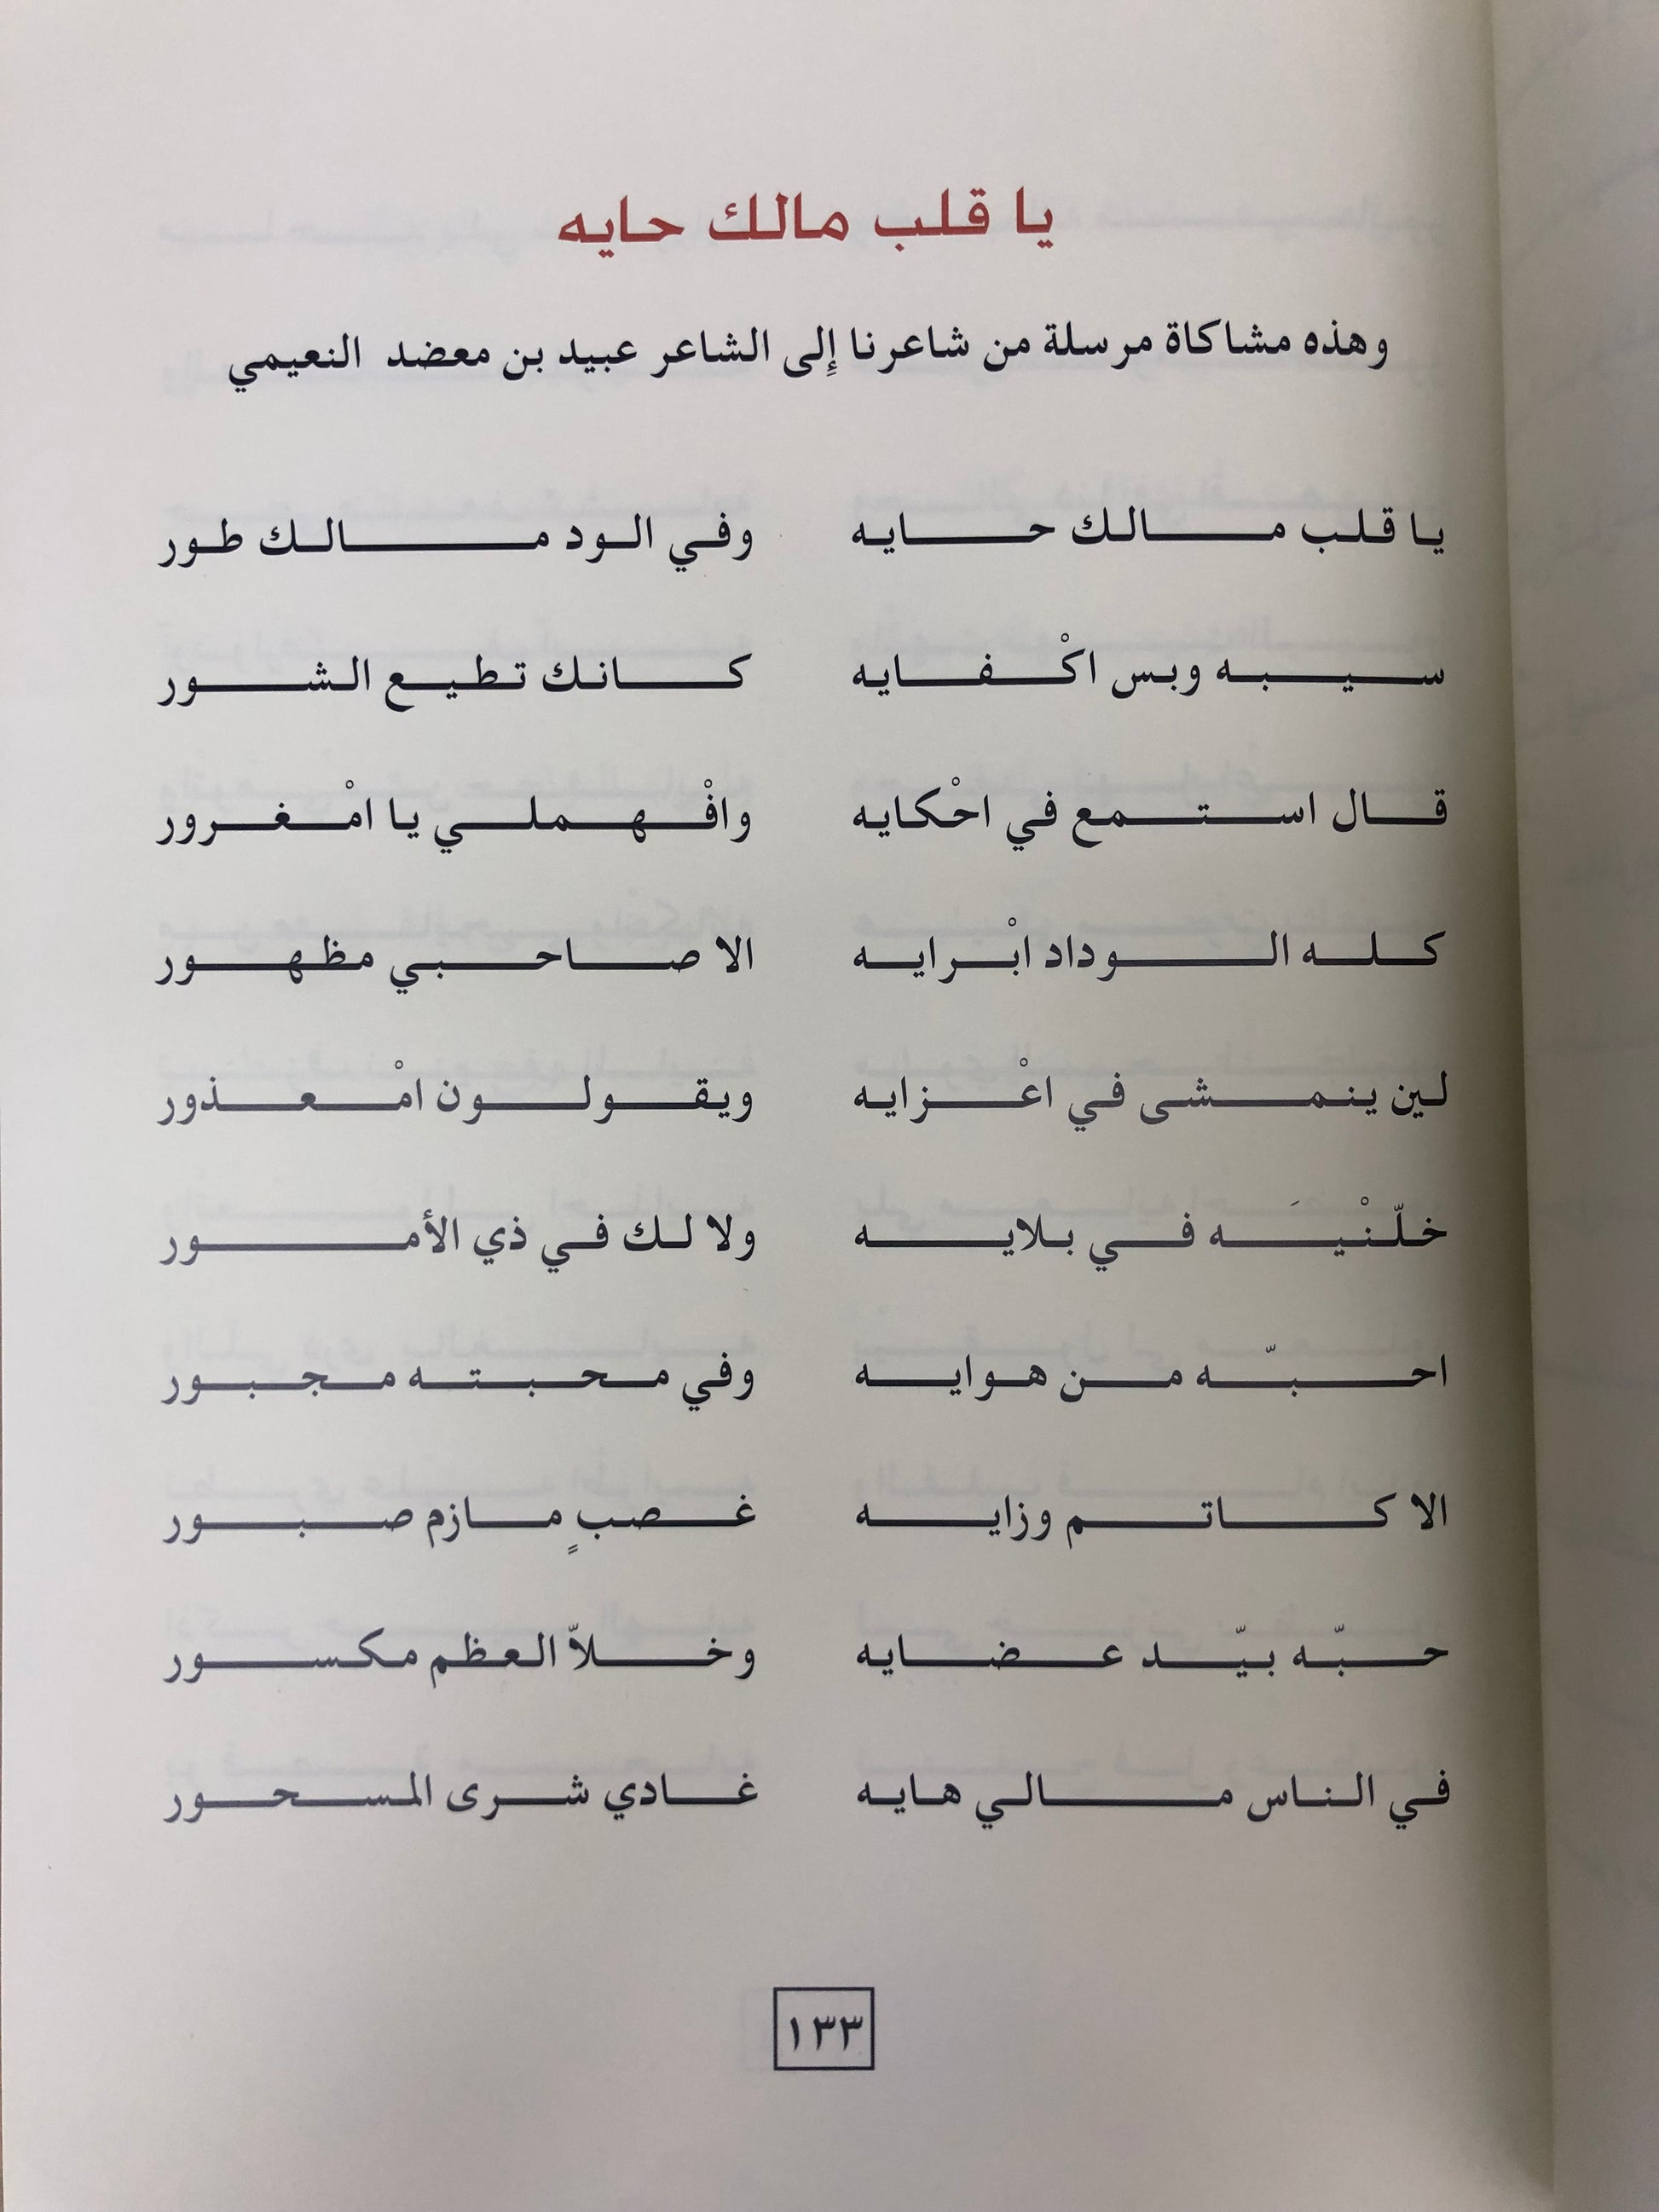 يا قلب مالك حايه
وهذه مشاكاة مرسلة من شاعرنا إلى الشاعر عبيد بن معضد النعيمي
يا قلب مالك حايه وفي الود مالك طور
سيبه وبس اكْفايه كانك تطيع الشور
قال استمع في احْكايه وافْهملي يا امْغرور
كله الوداد ابْرايه الا صاحبي مظهور
لين ينمشى في اعْزايه ويقولون امْعذور
خلّنْيَه في بلايه ولا لك في ذي الأمور
احبّه من هوايه وفي محبته مجبور
الا كاتم وزايه غصبٍ مازم صبور
حبّه بيّد عضايه وخلاّ العظم مكسور
في الناس مالي هايه غادي شرى المسحور
١٣٣